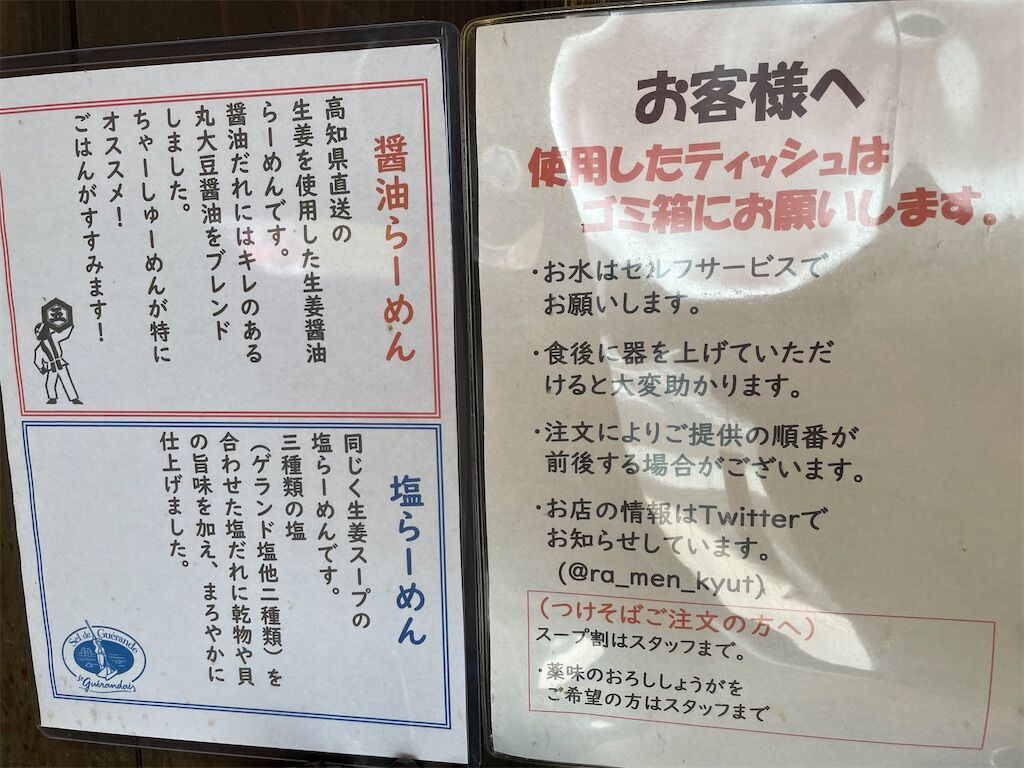 醤油らーめん
高知県直送の
生姜を使用した生姜醤油
らーめんです。
醤油だれにはキレのある
丸大豆醤油をブレンド
しました。
ちゃーしゅーめんが特に
オススメ！
ごはんがすすみます！
塩らーめん
同じく生姜スープの
塩らーめんです。
三種類の塩
（ゲランド塩他二種類）を
合わせた塩だれに乾物や貝
の旨味を加え、まろやかに
仕上げました。
Sel de Guérande
le Guérandais
お客様へ
使用したティッシュは
ゴミ箱にお願いします。
・お水はセルフサービスで
お願いします。
・食後に器を上げていただ
けると大変助かります。
・注文によりご提供の順番が
前後する場合がございます。
・お店の情報はTwitterで
お知らせしています。
(@ra_men_kyut)
（つけそばご注文の方へ）
スープ割はスタッフまで。
・薬味のおろししょうがを
ご希望の方はスタッフまで